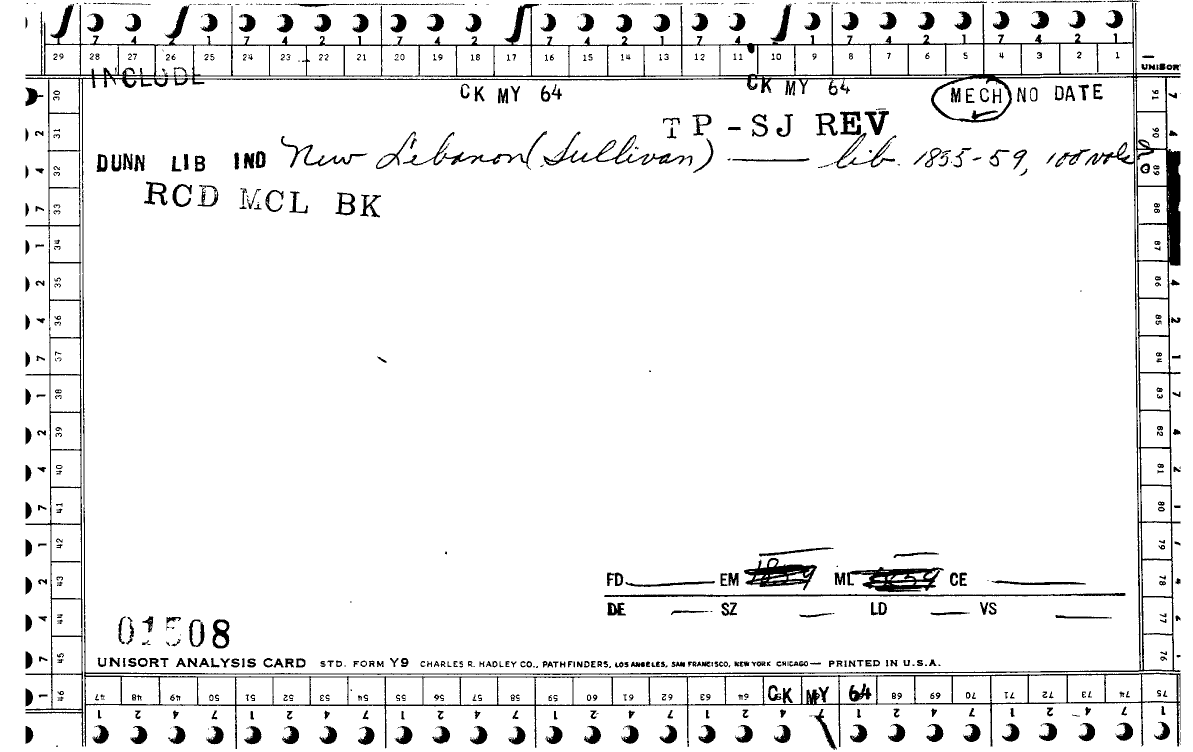 7 4 2 1 7 4 2 1 7 4 2 1 7 4 2 1 7 4 2 1 7 4 2 1
29 28 27 26 25 24 23 22 21 20 19 18 17 16 15 14 13 12 11 10 9 8 7 6 5 4 3 2 1
UNISORT
INCLUDE
CK MY 64
CK MY 64
MECH NO DATE
TP-SJ REV
DUNN LIB IND New Lebanon (Sullivan) —— lib. 1855-59, 100 vols
RCD MCL BK
30 31 32 33 34 35 36 37 38 39 40 41 42 43 44 45 46
91 90 89 88 87 86 85 84 83 82 81 80 79 78 77 76 75
FD EM 1859 ML 1859 CE
DE SZ LD VS
01508
UNISORT ANALYSIS CARD STD. FORM Y9 CHARLES R. HADLEY CO., PATHFINDERS, LOS ANGELES, SAN FRANCISCO, NEW YORK CHICAGO — PRINTED IN U.S.A.
47 48 49 50 51 52 53 54 55 56 57 58 59 60 61 62 63 64 CK MY 64 68 69 70 71 72 73 74 75
1 2 4 7 1 2 4 7 1 2 4 7 1 2 4 7 1 2 4 7 1 2 4 7 1 2 4 7 1